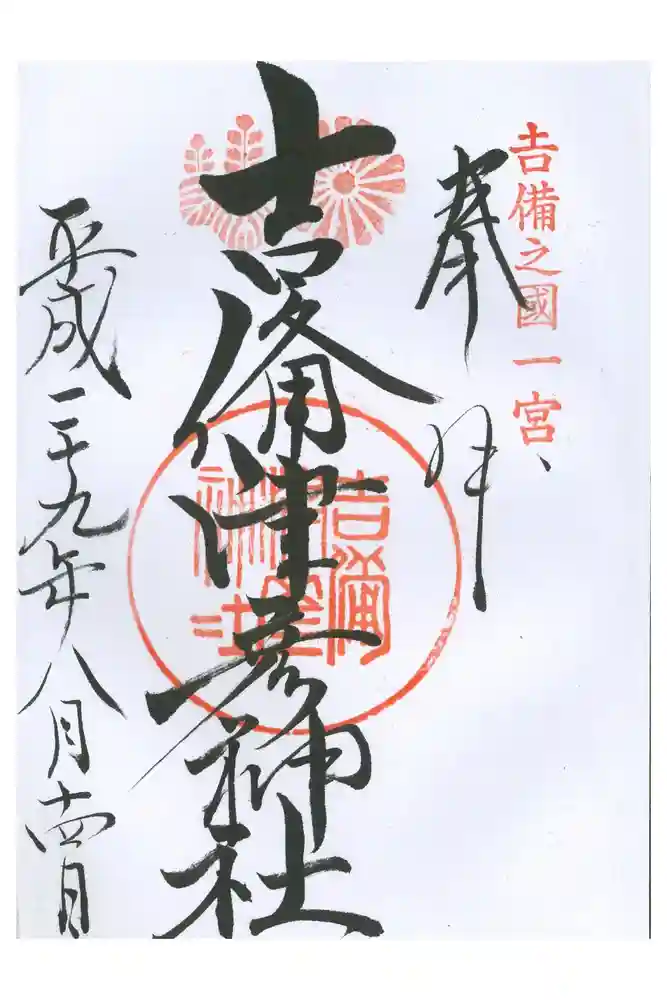 吉備之國一宮
奉拝
吉備津彦神社
吉備津彦神社
平成二十九年八月十四日